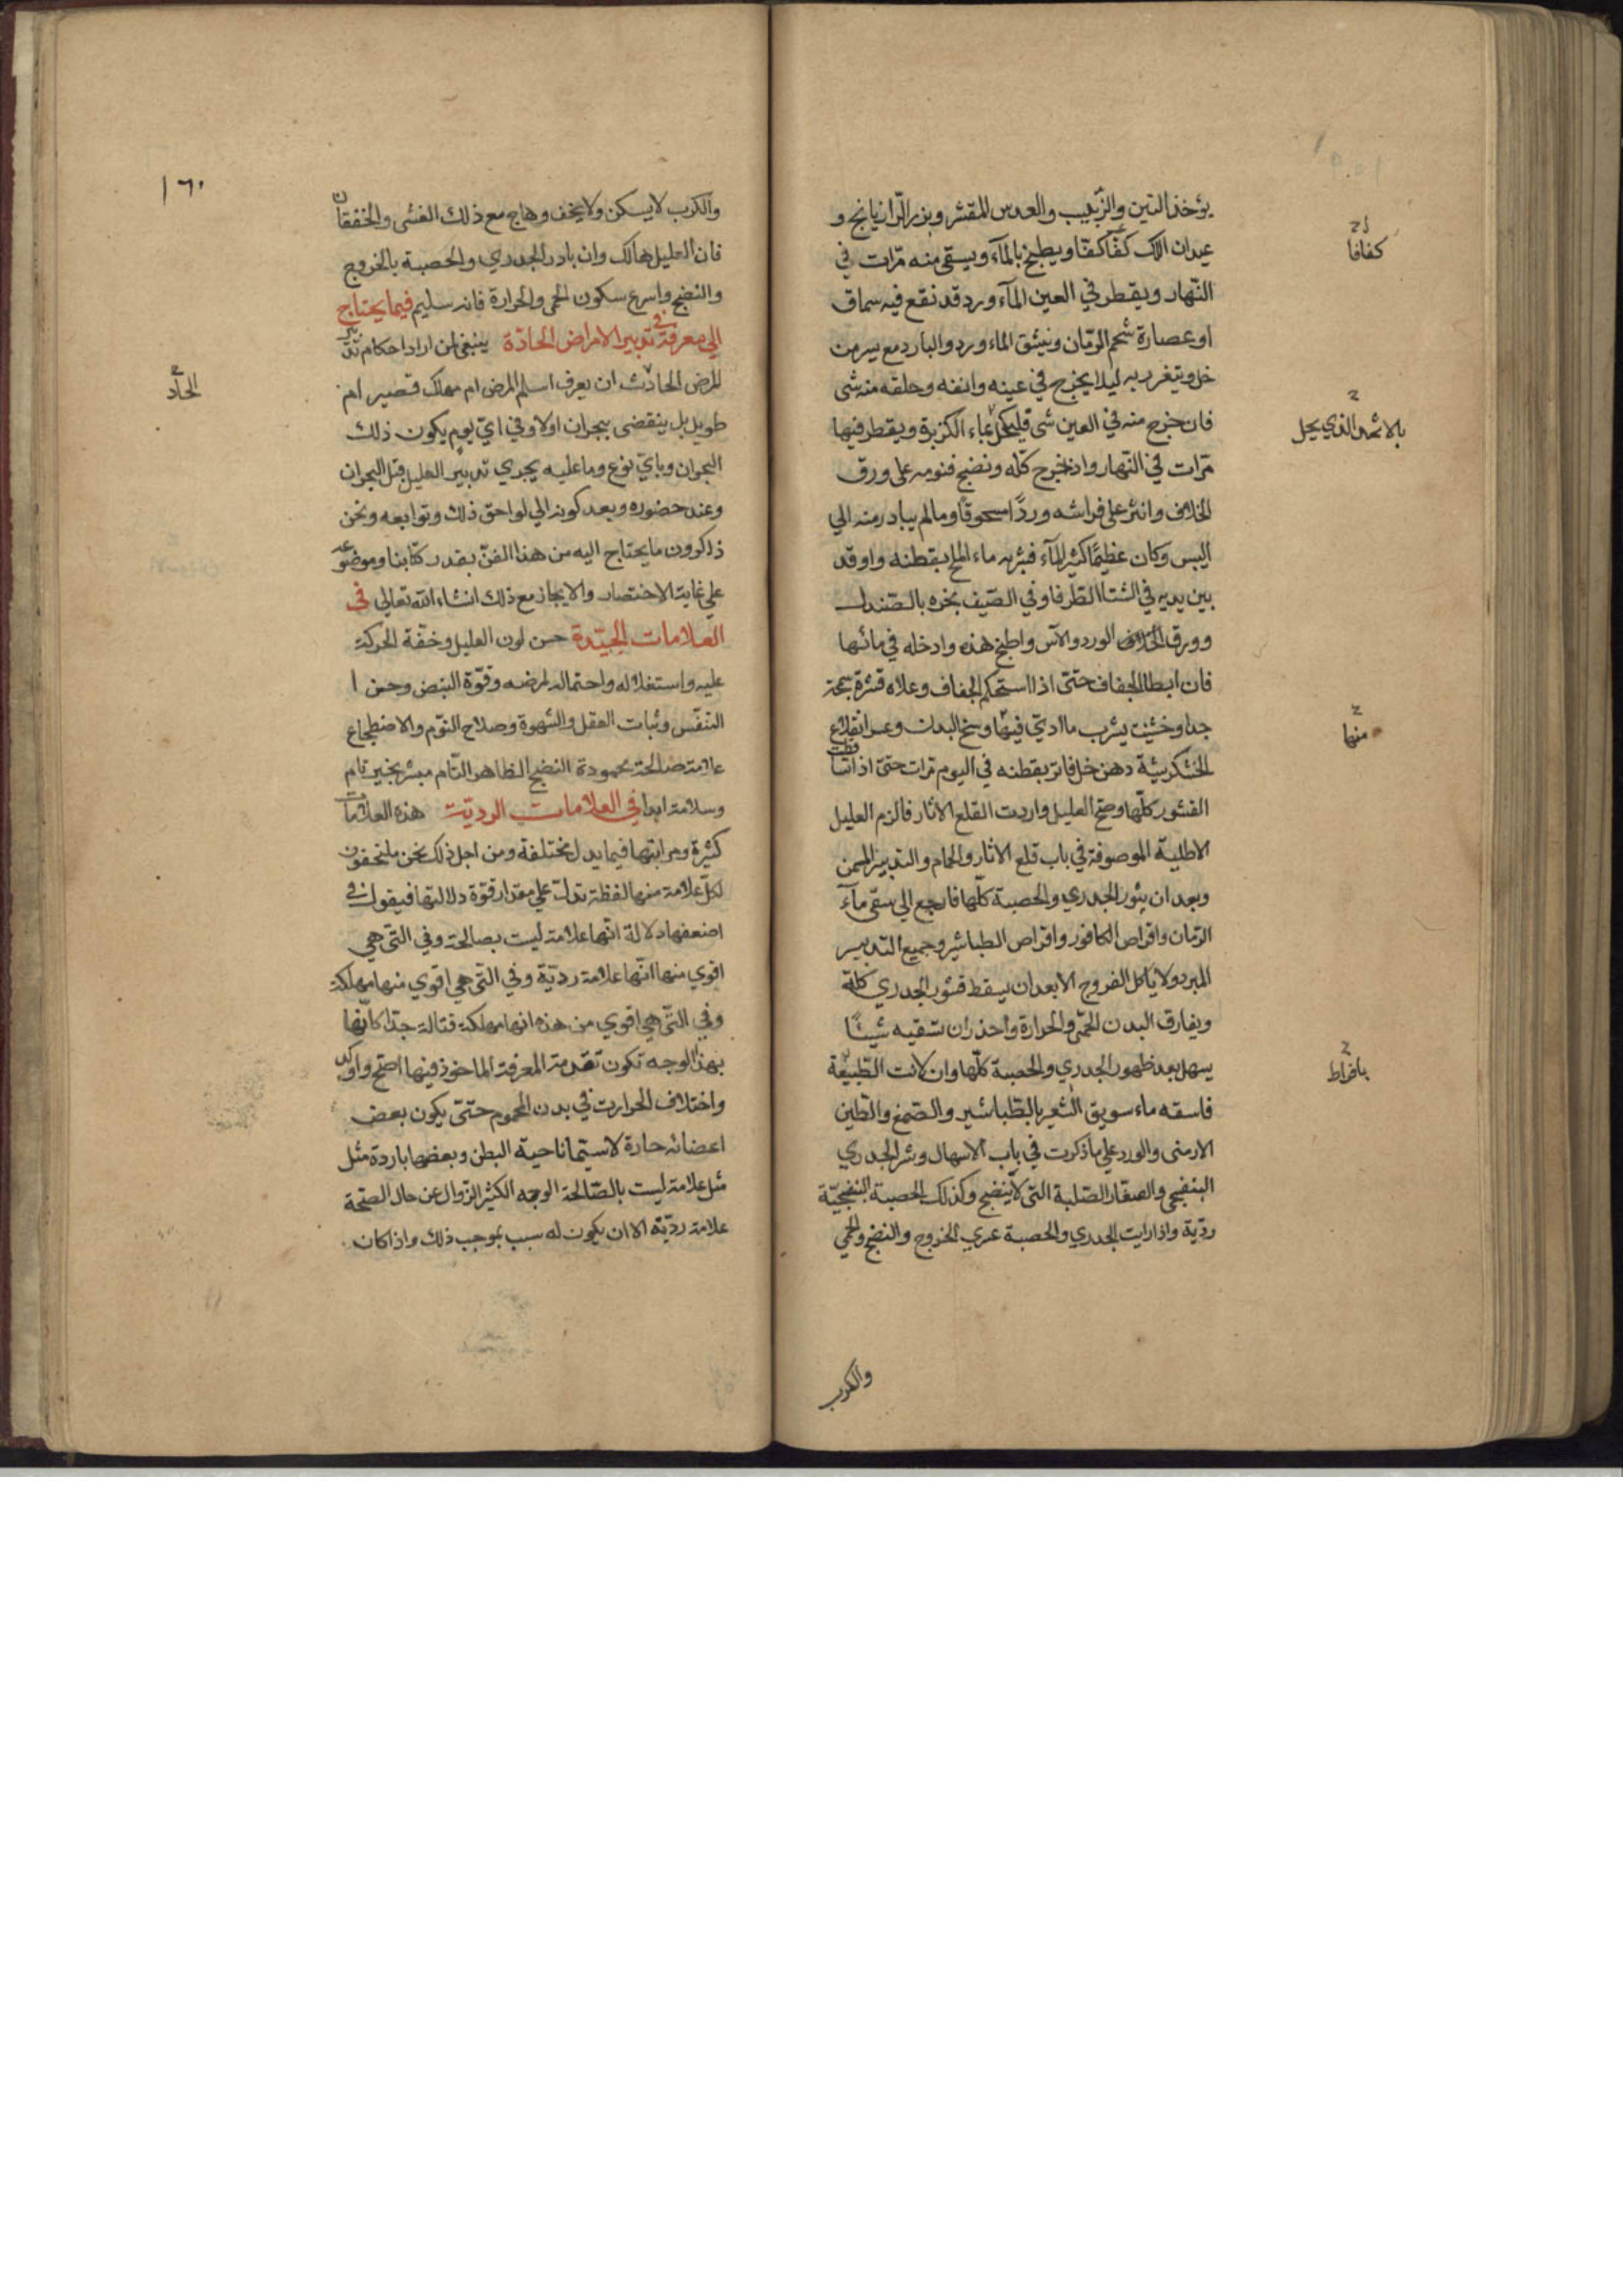 يؤخذ التين والزبيب والعدس المقشر وبزر الرازيانج و
عيدان اللك كفا كفا ويطبخ بالمآء ويسقى منه مرّات في
كفافا
النهار ويقطر في العين المآء ورد قد نقع فيه سماق
او عصارة شحم الرمّان وينشق الماء ورد والبارد مع يسر من
خل ويتغرر به ليلا يخرج في عينه وانفه وحلقه منه شى
فان خرج منه في العين شى قليكحل بماء الكزبرة ويقطر فيها
بالاثمد الذي يحل
مرّات في النهار واذ يخرج كله ونضج فنومه على ورق
الخلاف وانثر على فراشه وردًا مسحوقًا وما لم يبادر منه الي
اليبس وكان عظيمًا كثير المآء فبثره ماء الملح بقطنه واوقد
بين يديه في الشتا الطرفا وفي الصّيف بخره بالصّندل
وورق الخلاف الورد والآس واطبخ هذه وادخله في مائها
فان ابطا الجفاف حتىّ اذا استحكم الجفاف وعلاه قشرة سمجة
جدا وخشنت يشرب ما اديّ فيها وسخ البدن وعسر انقلاع
منها
الخشكريشة دهن خل فاتر بقطنه في اليوم مرات حتىّ اذا تساقطت
القشور كلّها وصح العليل واردت القلع الاثار فالزم العليل
الاطلية الموصوفة في باب قلع الاثار والحمام والتدبير المسمن
وبعد ان يثور الجدري والحصبة كلّها فارجع الي سقي مآء
الرّمان واقراص الكافور واقراص الطباشير وجميع التدبير
المبرد ولا ياكل الفروج الا بعد ان يسقط قشور الجدري كلّة
ويفارق البدن الحمّى والحرارة واحذر ان تسقيه شيئًا
يسهل بعد ظهور الجدري والحصبة كلّها وان لانت الطبيعة
بافراط
فاسقه ماء سويق الشعير بالطباشير والصّمغ والطين
الارمنى والورد على ما ذكرت في باب الاسهال وشر الجدري
البنفسجى والصغار الصّلبة التى لا ينضج وكذلك الحصبة البنفسجيّة
ردّية واذا رايت الجدري والحصبة عسري الخروج والنضج والحمي
والكرب
١٦٠
والكرب لا يسكن ولا يخف وهاج مع ذلك الغشى والخفقان
فان العليل هالك وان بادر الجدري والحصبة بالخروج
والنضج واسرع سكون الحمى والحرارة فانه سليم فيما يحتاج
الي معرفة في تدبير الامراض الحادّة ينبغى لمن اراد احكام تدبير
المرض الحادث ان يعرف اسلم المرض ام مهلك قصير ام
الحآد
طويل بل ينقضى ببحران اولا وفي ايّ يوم يكون ذلك
البحران وبايّ نوع وما عليه يجري تدبير العليل قبل البحران
وعند حضوره وبعد كونه الي لواحق ذلك وتوابعه ونحن
ذاكرون ما يحتاج اليه من هذا الفنّ بقدر كتابنا وموضوعه
علي غاية الاختصار والايجاز مع ذلك انشاء الله تعالي في
العلامات الجيّدة حسن لون العليل وخفّة الحركة
عليه واستغلاله واحتماله لمرضه وقوّة النبض وحسن ا
التنفّس وثبات العقل والشهوة وصلاح النوّم والاضطجاع
علامة صالحة محمودة النضج الظاهر التام مبشر بخير تام
وسلامة ابدا في العلامات الرديّة هذه العلامات
كثيرة ومراتبها فيما يدل مختلفة ومن اجل ذلك نحن ملتحفون
لكلّ علامة منها لفظة تدلّ علي مقدار قوّة دلالتها فيقول في
اضعفها دلالة انّها علامة ليست بصالحة وفي التّى هي
اقوي منها انّها علامة رديّة وفي التّى هي اقوي منها مهلكة
وفي التّى هي اقوي من هذه انها مهلكة قتالة جدّا كانّها
بهذا الوجه تكون تقدمة المعرفة الماخوذ فيها اصلح واوكد
واختلاف الحرارت في بدن المحموم حتىّ يكون بعض
اعضائه حارة لا سيّما ناحية البطن وبعضها باردة مثل
مثل علامة ليست بالصّالحة الوجه الكثير الزوال عن حال الصّحة
علامة رديّة الا ان يكون له سبب بموجب ذلك واذا كان